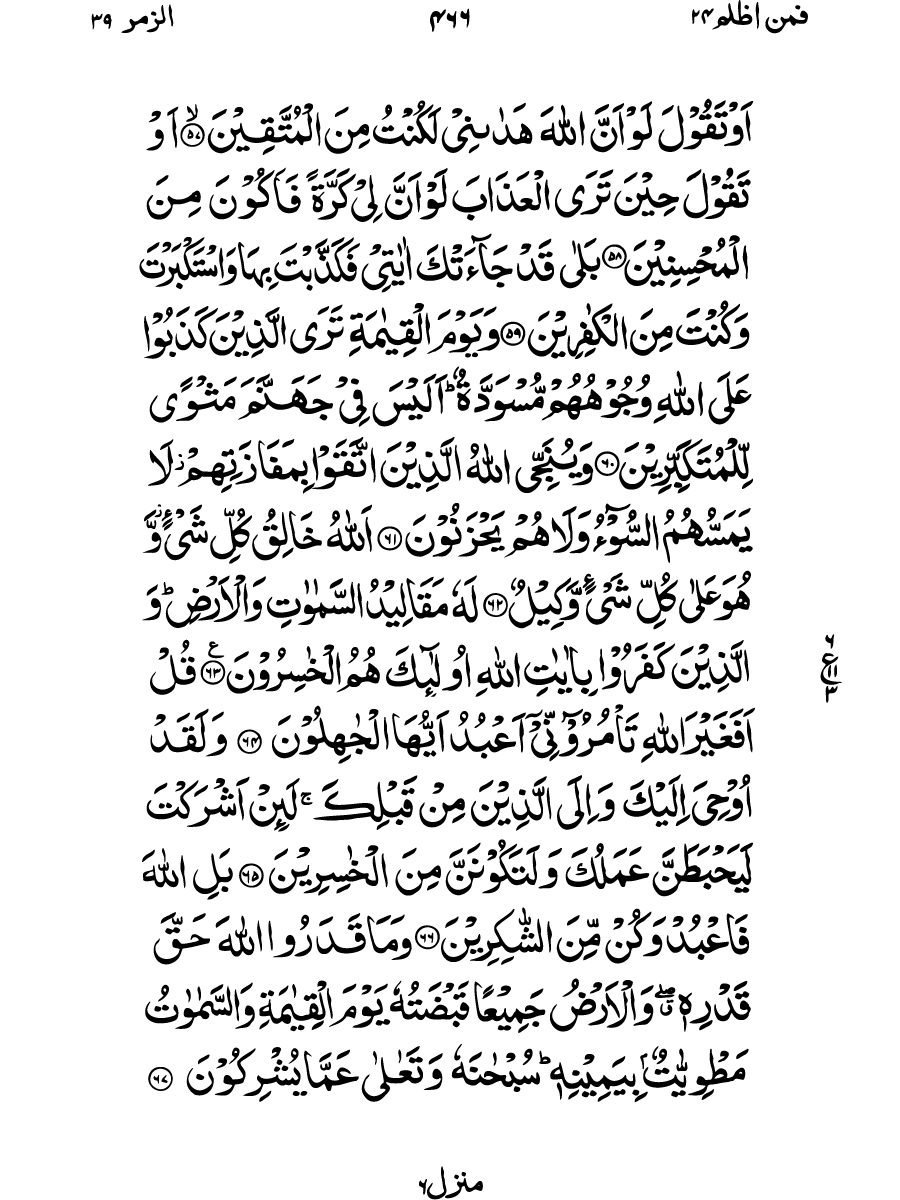 فمن اظلم ۲۴
۴۶۶
الزمر ۳۹
اَوۡ تَقُوۡلَ لَوۡ اَنَّ اللّٰهَ هَدٰٮنِىۡ لَكُنۡتُ مِنَ الۡمُتَّقِيۡنَۙ‏﴿۵۷﴾ اَوۡ
تَقُوۡلَ حِيۡنَ تَرَى الۡعَذَابَ لَوۡ اَنَّ لِىۡ كَرَّةً فَاَكُوۡنَ مِنَ
الۡمُحۡسِنِيۡنَ‏﴿۵۸﴾ بَلٰى قَدۡ جَآءَتۡكَ اٰيٰتِىۡ فَكَذَّبۡتَ بِهَا وَاسۡتَكۡبَرۡتَ
وَكُنۡتَ مِنَ الۡكٰفِرِيۡنَ‏﴿۵۹﴾ وَيَوۡمَ الۡقِيٰمَةِ تَرَى الَّذِيۡنَ كَذَبُوۡا
عَلَى اللّٰهِ وُجُوۡهُهُمۡ مُّسۡوَدَّةٌ ؕ اَلَيۡسَ فِىۡ جَهَنَّمَ مَثۡوًى
لِّلۡمُتَكَبِّرِيۡنَ‏﴿۶۰﴾ وَيُنَجِّىۡ اللّٰهُ الَّذِيۡنَ اتَّقَوۡا بِمَفَازَتِهِمۡ لَا
يَمَسُّهُمُ السُّوۡٓءُ وَلَا هُمۡ يَحۡزَنُوۡنَ‏﴿۶۱﴾ اَللّٰهُ خَالِقُ كُلِّ شَىۡءٍ وَّ
هُوَ عَلٰى كُلِّ شَىۡءٍ وَّكِيۡلٌ‏﴿۶۲﴾ لَّهٗ مَقَالِيۡدُ السَّمٰوٰتِ وَالۡاَرۡضِ ؕ وَ
الَّذِيۡنَ كَفَرُوۡا بِاٰيٰتِ اللّٰهِ اُولٰٓٮِٕكَ هُمُ الۡخٰسِرُوۡنَ‏﴿۶۳﴾ قُلۡ
اَفَغَيۡرَ اللّٰهِ تَاۡمُرُوۡٓنِّىۡٓ اَعۡبُدُ اَيُّهَا الۡجٰهِلُوۡنَ‏﴿۶۴﴾ وَلَقَدۡ
اُوۡحِىَ اِلَيۡكَ وَاِلَى الَّذِيۡنَ مِنۡ قَبۡلِكَ‌ ۚ لَٮِٕنۡ اَشۡرَكۡتَ
لَيَحۡبَطَنَّ عَمَلُكَ وَلَتَكُوۡنَنَّ مِنَ الۡخٰسِرِيۡنَ‏﴿۶۵﴾ بَلِ اللّٰهَ
فَاعۡبُدۡ وَكُنۡ مِّنَ الشّٰكِرِيۡنَ‏﴿۶۶﴾ وَمَا قَدَرُوا اللّٰهَ حَقَّ
قَدۡرِهٖ ۖ وَالۡاَرۡضُ جَمِيۡعًا قَبۡضَتُهٗ يَوۡمَ الۡقِيٰمَةِ وَالسَّمٰوٰتُ
مَطۡوِيّٰتٌۢ بِيَمِيۡنِهٖ‌ ؕ سُبۡحٰنَهٗ وَتَعٰلٰى عَمَّا يُشۡرِكُوۡنَ‏﴿۶۷﴾
۶
ع
۱۱
۳
منزل ۶